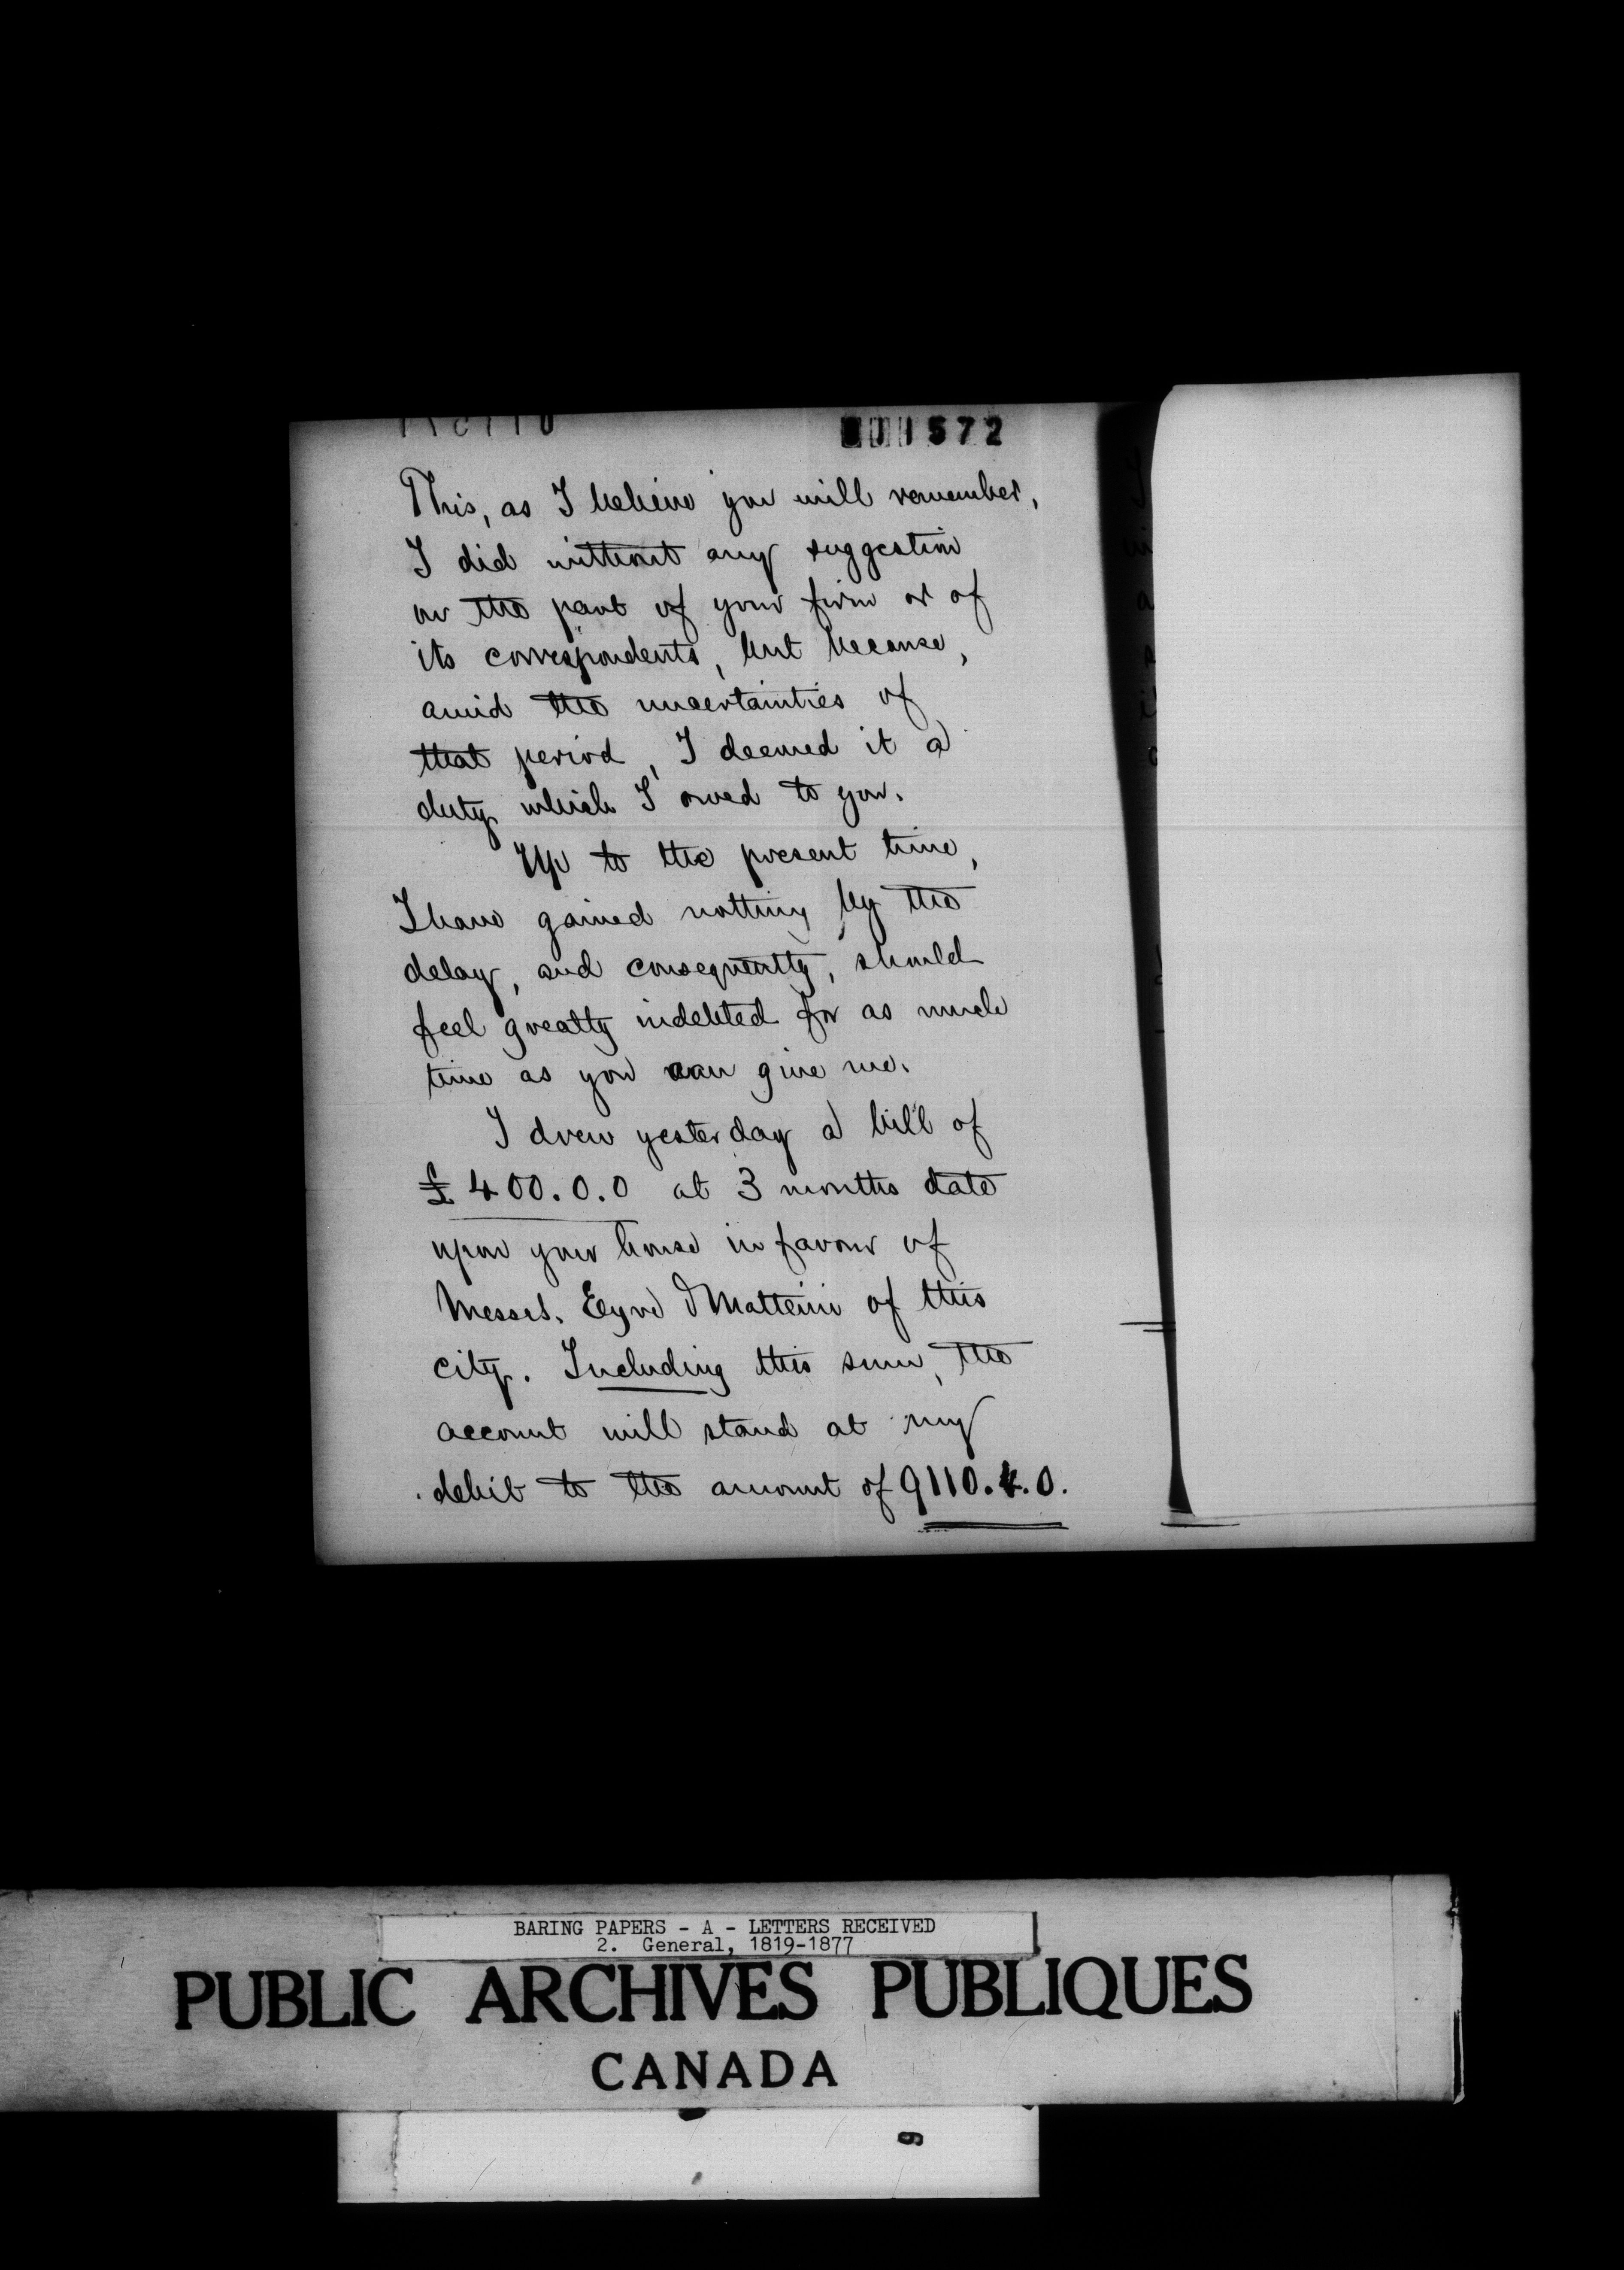 1572
This, as I believe you will remember,
I did without any suggestion
on the part of your firm or of
its correspondents, but because,
amid the uncertainties of
that period, I deemed it a
duty which I owed to you.
Up to the present time,
I have gained nothing by the
delay, and consequently, should
feel greatly indebted for as much
time as you can give me.
I drew yesterday a bill of
£400.0.0 at 3 months date
upon your house in favour of
Messrs. Eyre & Matteini of this
city. Including this sum, the
account will stand at my
debit to the amount of 9110.4.0.
BARING PAPERS - A - LETTERS RECEIVED
2. General, 1819-1877
PUBLIC ARCHIVES PUBLIQUES
CANADA